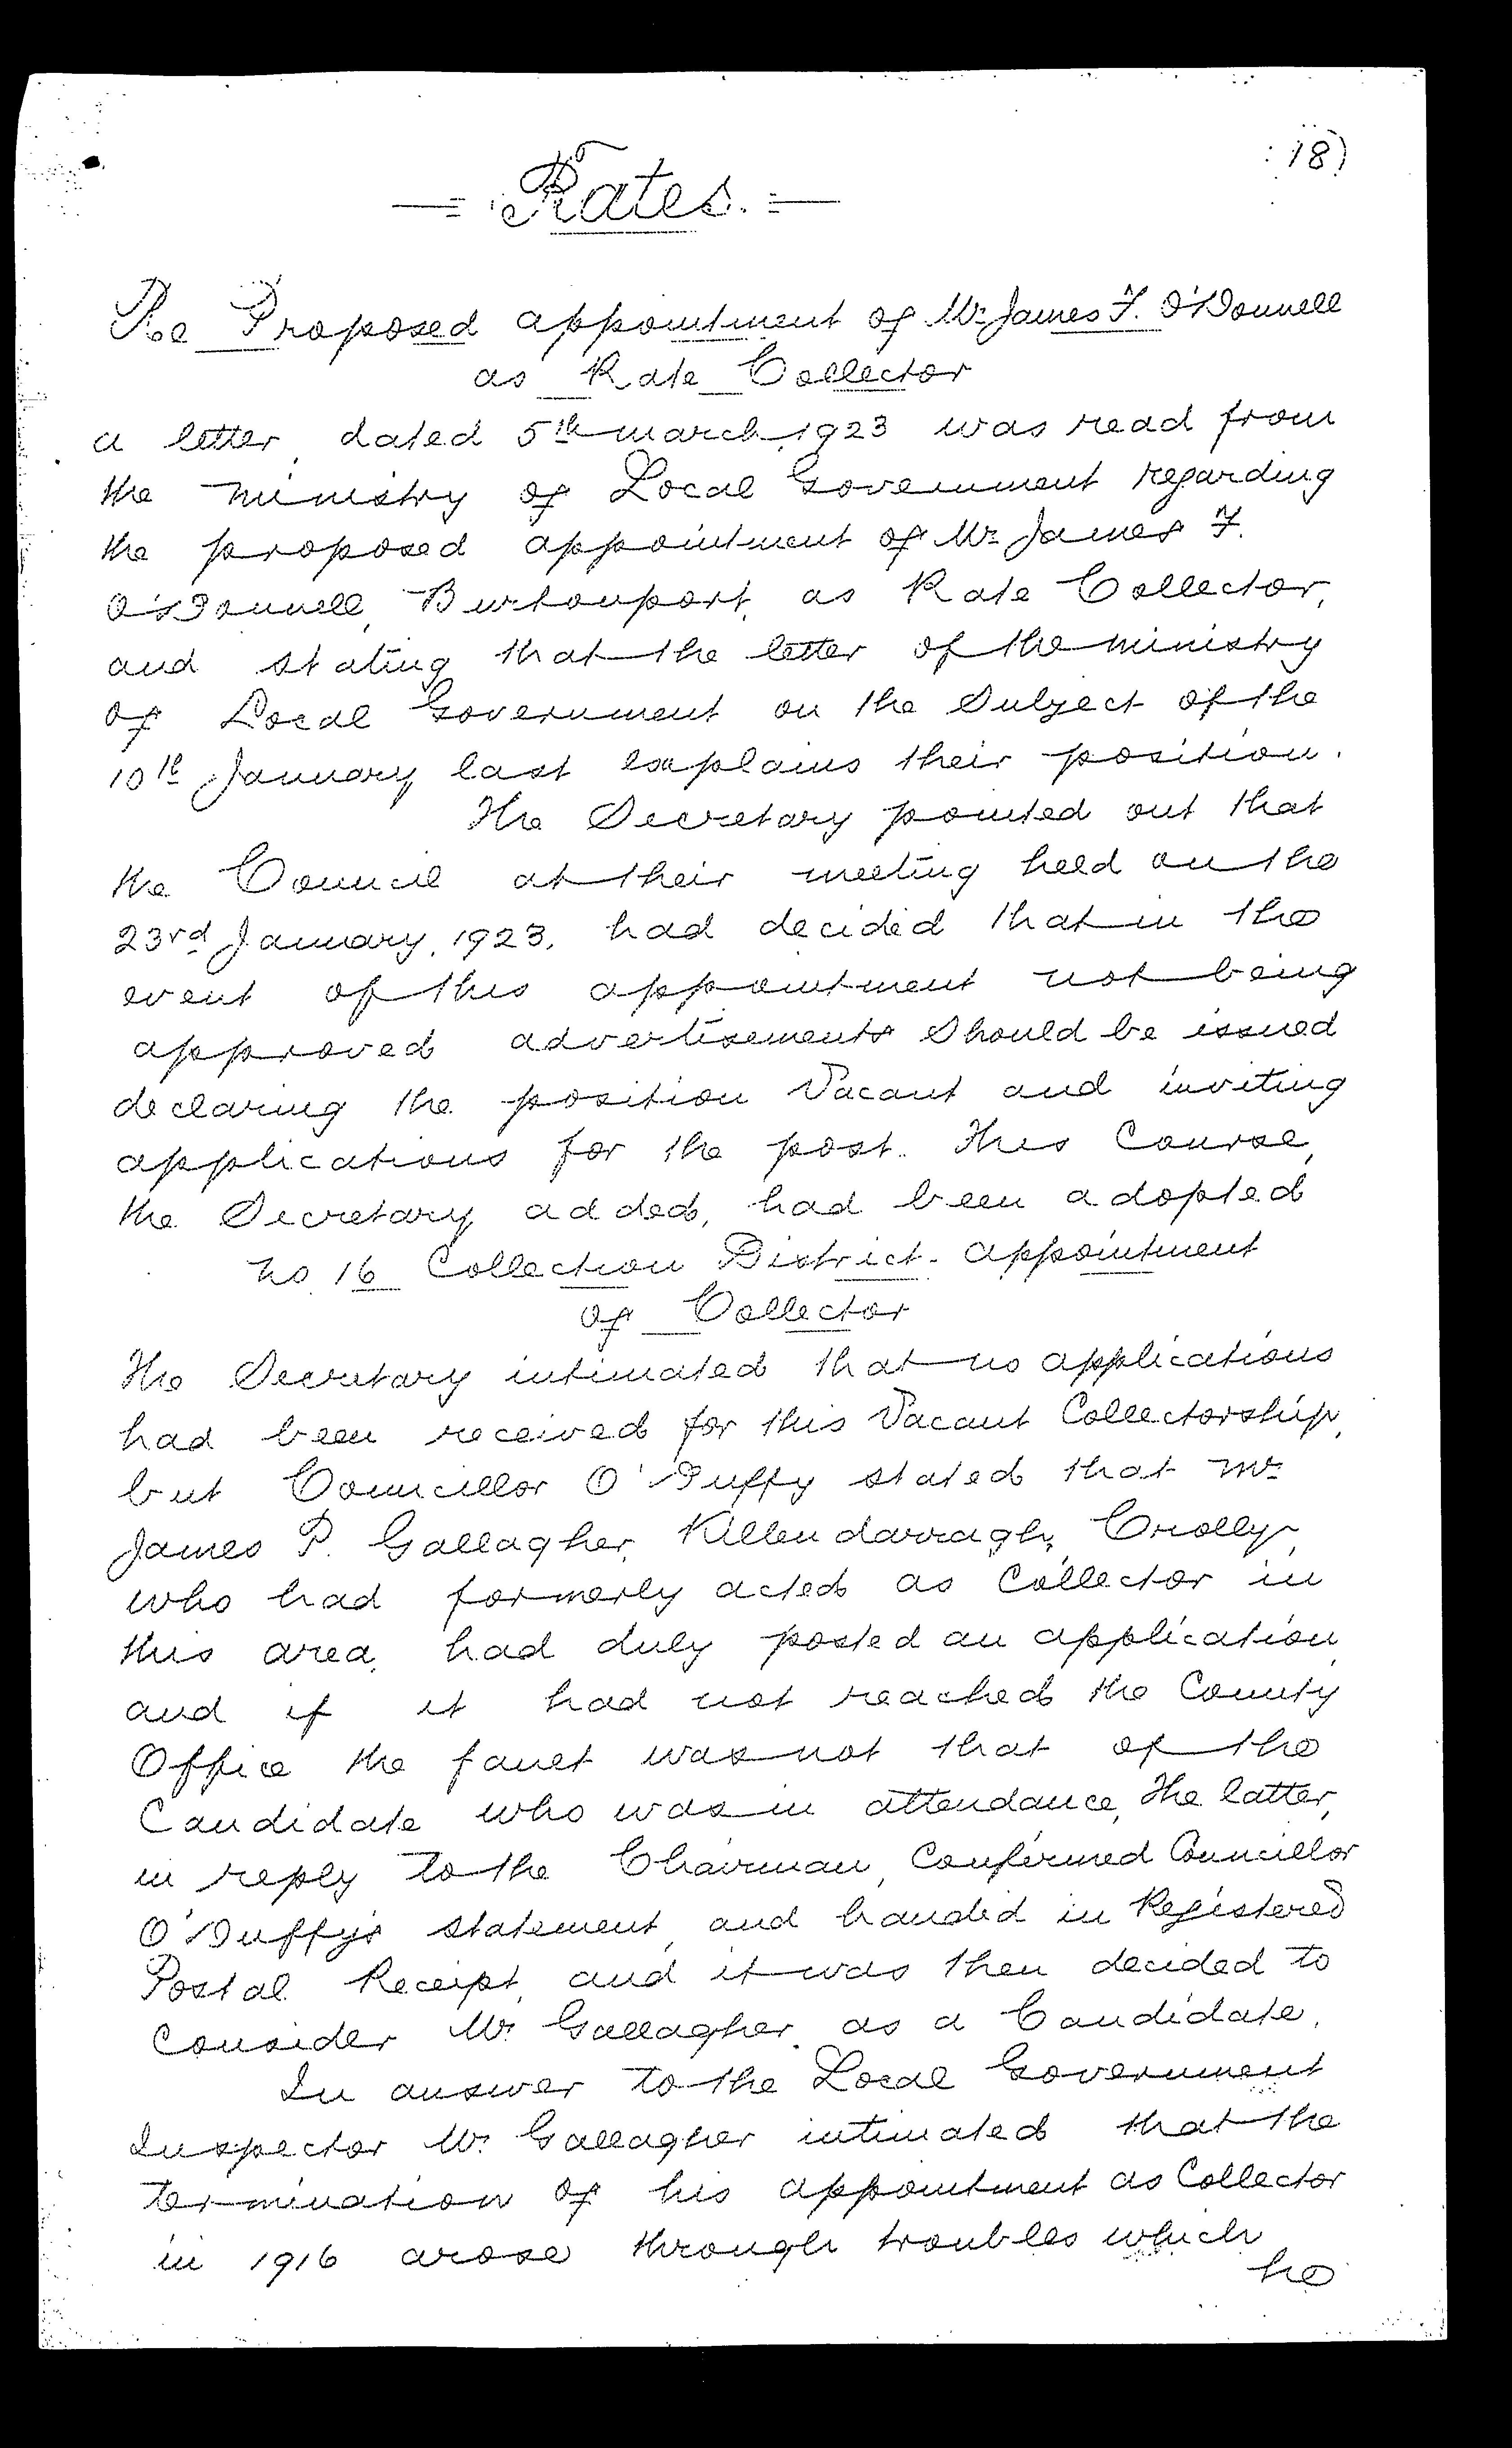 18)
Rates.
Re Proposed appointment of Mr James F. O'Donnell
as Rate Collector
a letter, dated 5th march, 1923 was read from
the ministry of Local Government regarding
the proposed appointment of Mr James F.
O'Donnell, Burtonport, as Rate Collector,
and stating that the letter of the ministry
of Local Government on the Subject of the
10th January last explains their position.
The Secretary pointed out that
the Council at their meeting held on the
23rd January, 1923, had decided that in the
event of this appointment not being
approved advertisements should be issued
declaring the position Vacant and inviting
applications for the post. This Course,
the Secretary added, had been adopted
no. 16 Collection District. appointment
of Collector
The Secretary intimated that no applications
had been received for this Vacant Collectorship,
but Councillor O'Duffy stated that Mr
James P. Gallagher, Killendarragh, Crolly,
who had formerly acted as Collector in
this area, had duly posted an application,
and if it had not reached the County
Office the fault was not that of the
Candidate who was in attendance, The latter,
in reply to the Chairman, Confirmed Councillor
O'Duffy's statement, and handed in Registered
Postal Receipt, and it was then decided to
Consider Mr Gallagher as a Candidate.
In answer to the Local Government
Inspector Mr Gallagher intimated that the
termination of his appointment as Collector
in 1916 arose through troubles which
he